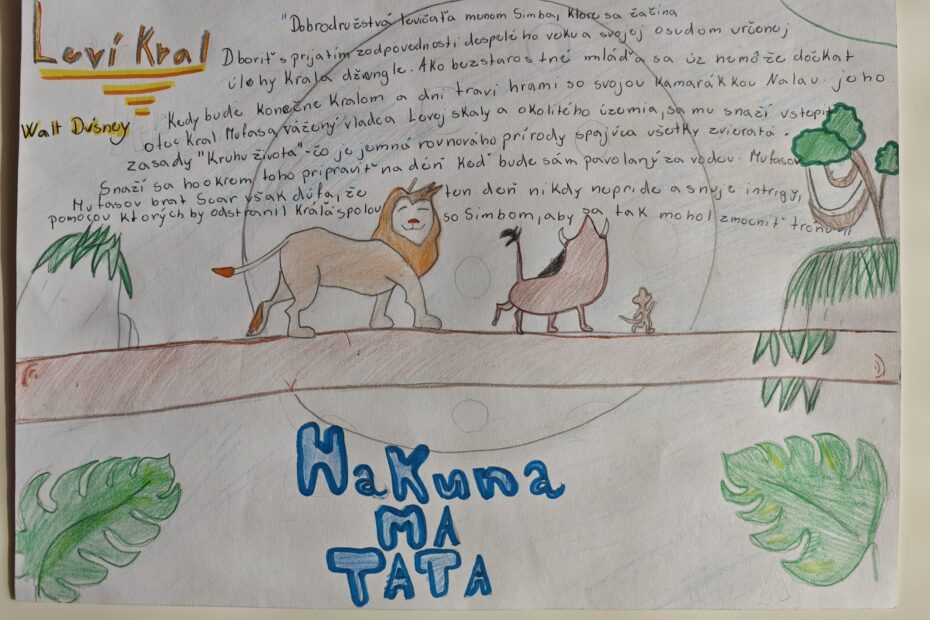 Leví Kral
Walt Disney
"Dobrodružstvá levíčaťa menom Simba, ktoré sa začína
Dboriť s prijatím zodpovednosti dospelého veku a svojej osudom určenej
úlohy Kráľa džungle. Ako bezstarostné mláďa sa úz nemôže dočkať
Kedy bude Konečne Kralom a dni trávi hrami so svojou Kamarákkou Nalou. jeho
otec Kral Mufasa, vážený vladca Levej skaly a okolitého územia, sa mu snaží vstepiť
zasady "Kruhu života"-čo je jemná rovnováho prírody spajúca všetky zvieratá.
Snaží sa ho okrem toho pripraviť na deň Keď bude sám povolaný za vodcu. Mufasov
Mufasov brat Scar však dúfa, že ten deň nikdy nepride a snuje intrigy,
pomocou ktorých by odstranil Kráľa spolou so Simbom, aby sa tak mohol zmocniť tronu."
Hakuna
MA
TATA